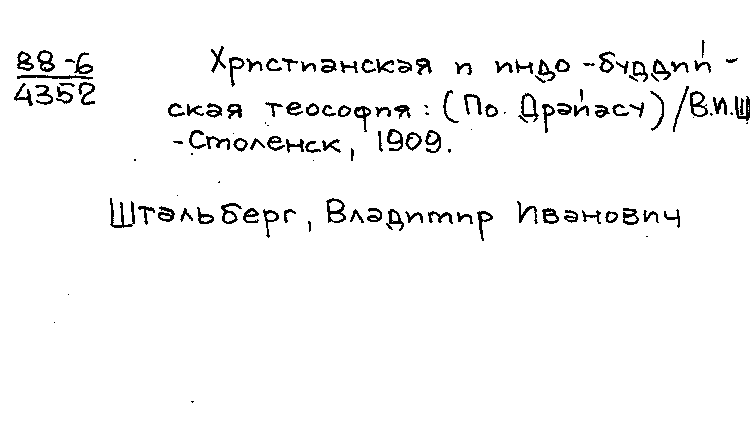 88-6
4352
Христианская и индо-буддий-
ская теософия: (По Драйасу) / В.И.Ш
-Смоленск, 1909.
Штальберг, Владимир Иванович